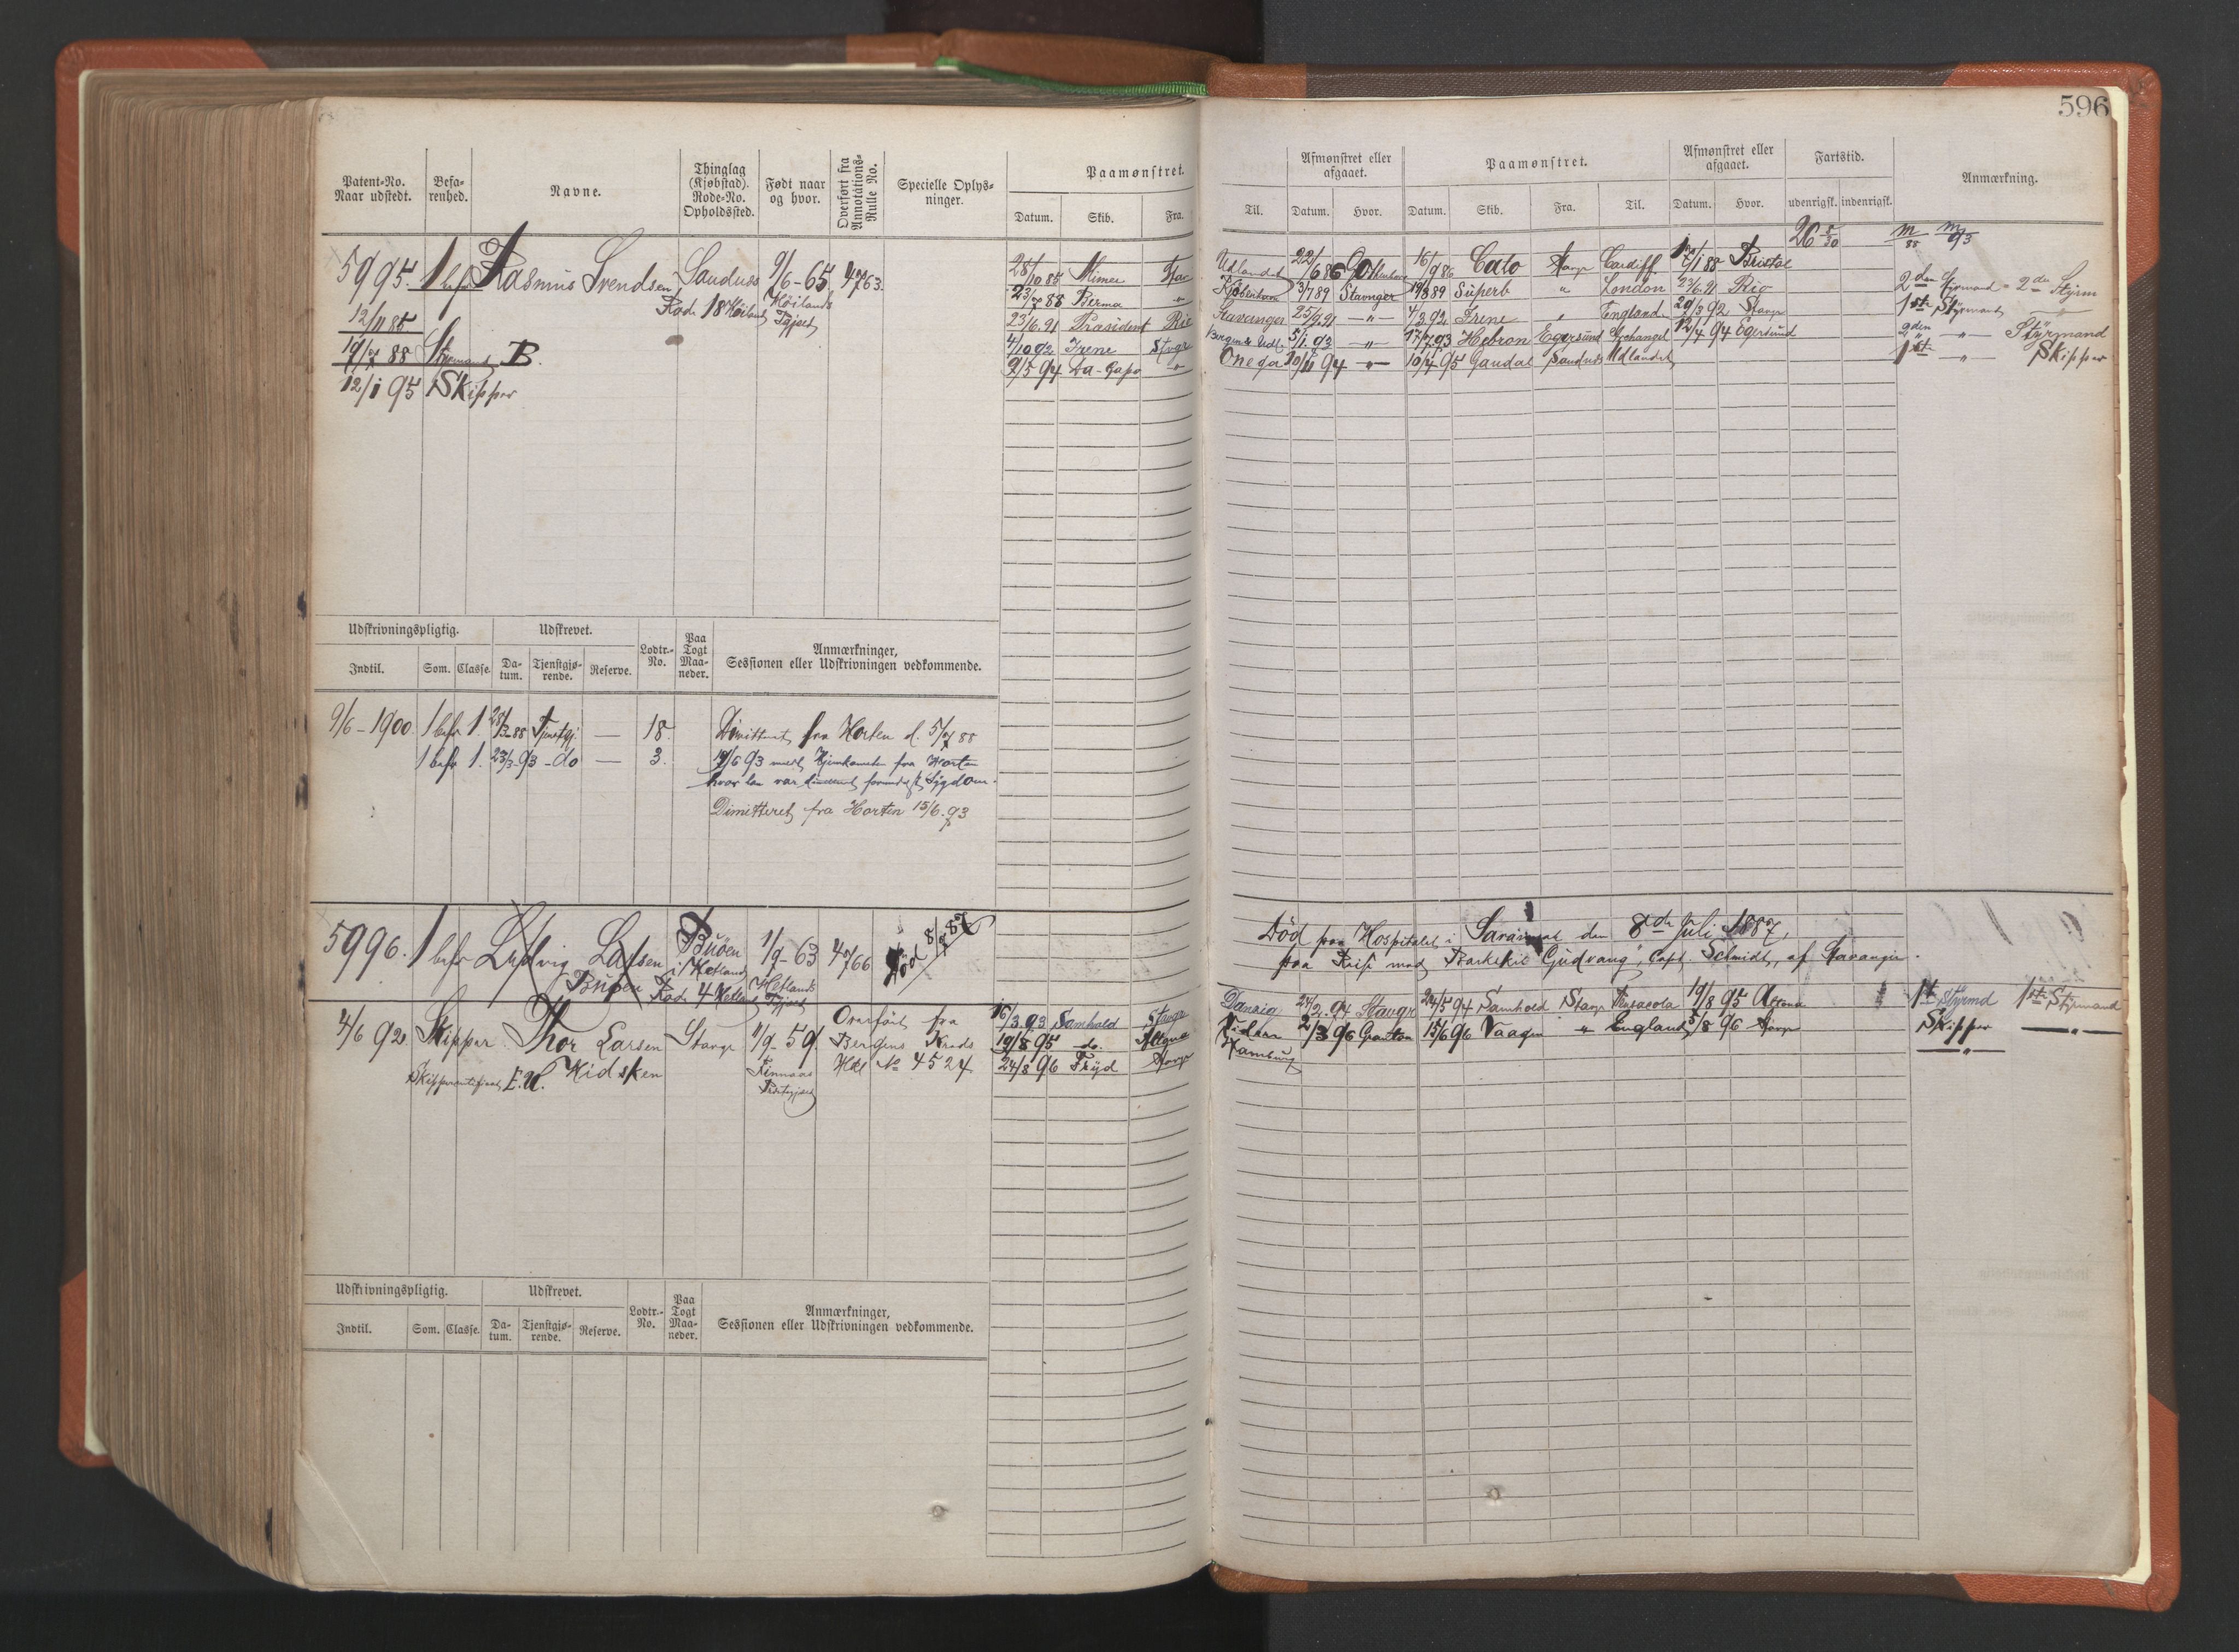 596
Patent-No.
Naar udstedt.
Befa-
renhed.
Navne.
Thinglag
(Kjøbstad).
Rode-No.
Opholdssted.
Født naar
og hvor.
Overført fra
Annotations-
Rulle No.
Specielle Oplys-
ninger.
Paamønstret.
Datum. Skib. Fra.
Til.
Afmønstret eller
afgaaet.
Datum. Hvor.
Paamønstret.
Datum. Skib. Fra. Til.
Afmønstret eller
afgaaet.
Datum. Hvor.
Fartstid.
udenrigsk. indenrigsk.
Anmærkning.
5995. 1 bef Rasmus Svendsen Sandnes 9/6-65 4763.
Rode 18 Høiland Høilands
12/11 85
19/7 88 Styrmand B.
12/1 95 Skipper
28/10 85 Mimer
23/7 88 Birma "
23/6.91 Præsident Rio
4/10 92 Irene Stvgr
2/5 94 Da-Capo "
Udlandet 22/6 86 16/9 86 Cato Stavgr Cardiff 17/1 88 Bristol
Kjøbenhavn 3/7 89 Stavanger 19/8 89 Superb " London 23/6.91 Rio
Stavanger 25/9.91 -"- 4/3.92 Irene " England 29/3 92 Stavgr
Bergen & Udl. 5/1.93 -"- 17/7.93 Hebron Egersund Archangel 12/4 94 Egersund
Onega 20/11 94 -"- 10/4 95 Gandal Sandnes Udlandet
26 5/30
2den Styrmand = 2den Styrm
1ste Styrmand
2den -"- Styrmand
1ste -"- Skipper
Udskrivningspligtig.
Udskrevet.
Lodtr.-
No.
Paa
Togt
Maa-
neder.
Anmærkninger,
Sessionen eller Udskrivningen vedkommende.
Indtil. Som. Classe. Da-
tum. Tjenstgjø-
rende. Reserve.
9/6-1900 1 befr 1. 28/3-88 Tjenstgj. — 18. Dimitteret fra Horten d. 5/7 88
1 befr 1. 23/3-93 - do — 3. 14/6 93 meldt Hjemkommen fra Horten
hvor han var dimitteret formedelst Sygdom.
Dimitteret fra Horten 15/6.93
5996. 1 befr Ludvig Larsen Buøen 1/9-63 4766 Død 8/7 87
Buøen i Hetland Hetlands
Rode 4 Hetland
Død paa Hospitalet i den 8de Juli 1887,
paa Reise med Barkskib "Gudvang", Capt Schmidt, af Stavanger.
4/6 92 Skipper Thor Larsen Stavgr 1/9-59. Overført fra
Bergens Kreds
Hkl No 4524
Skippercertificat E.U. Kidsken Finnaas
Præstegjæld
16/3.93 Samhold Stavgr
19/8 95 do. Altona
24/8 96 Fryd Stavgr
Danzig 24/2.94 Stavgr 24/5 94 Samhold Stavgr Pensacola 19/8 95 Altona
2/3 96 Granton 15/6 96 Vaagen " England 5/8 96 Stavgr
Hamburg
1ste Styrmd 1ste Styrmand
Skipper —"—
—"—
Udskrivningspligtig.
Udskrevet.
Lodtr.-
No.
Paa
Togt
Maa-
neder.
Anmærkninger,
Sessionen eller Udskrivningen vedkommende.
Indtil. Som. Classe. Da-
tum. Tjenstgjø-
rende. Reserve.